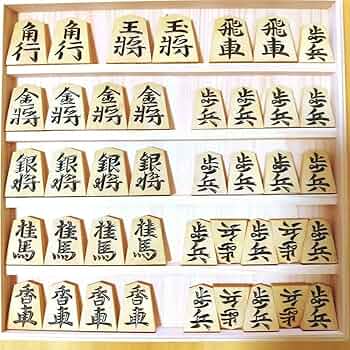 角行 角行 王將 玉將 飛車 飛車 歩兵
金將 金將 金將 金將 歩兵 歩兵 歩兵 歩兵
銀将 銀将 銀将 銀将 歩兵 歩兵 歩兵 歩兵
桂馬 桂馬 桂馬 桂馬 歩兵 歩兵 歩兵 歩兵 歩兵
香車 香車 香車 香車 歩兵 歩兵 歩兵 歩兵 歩兵